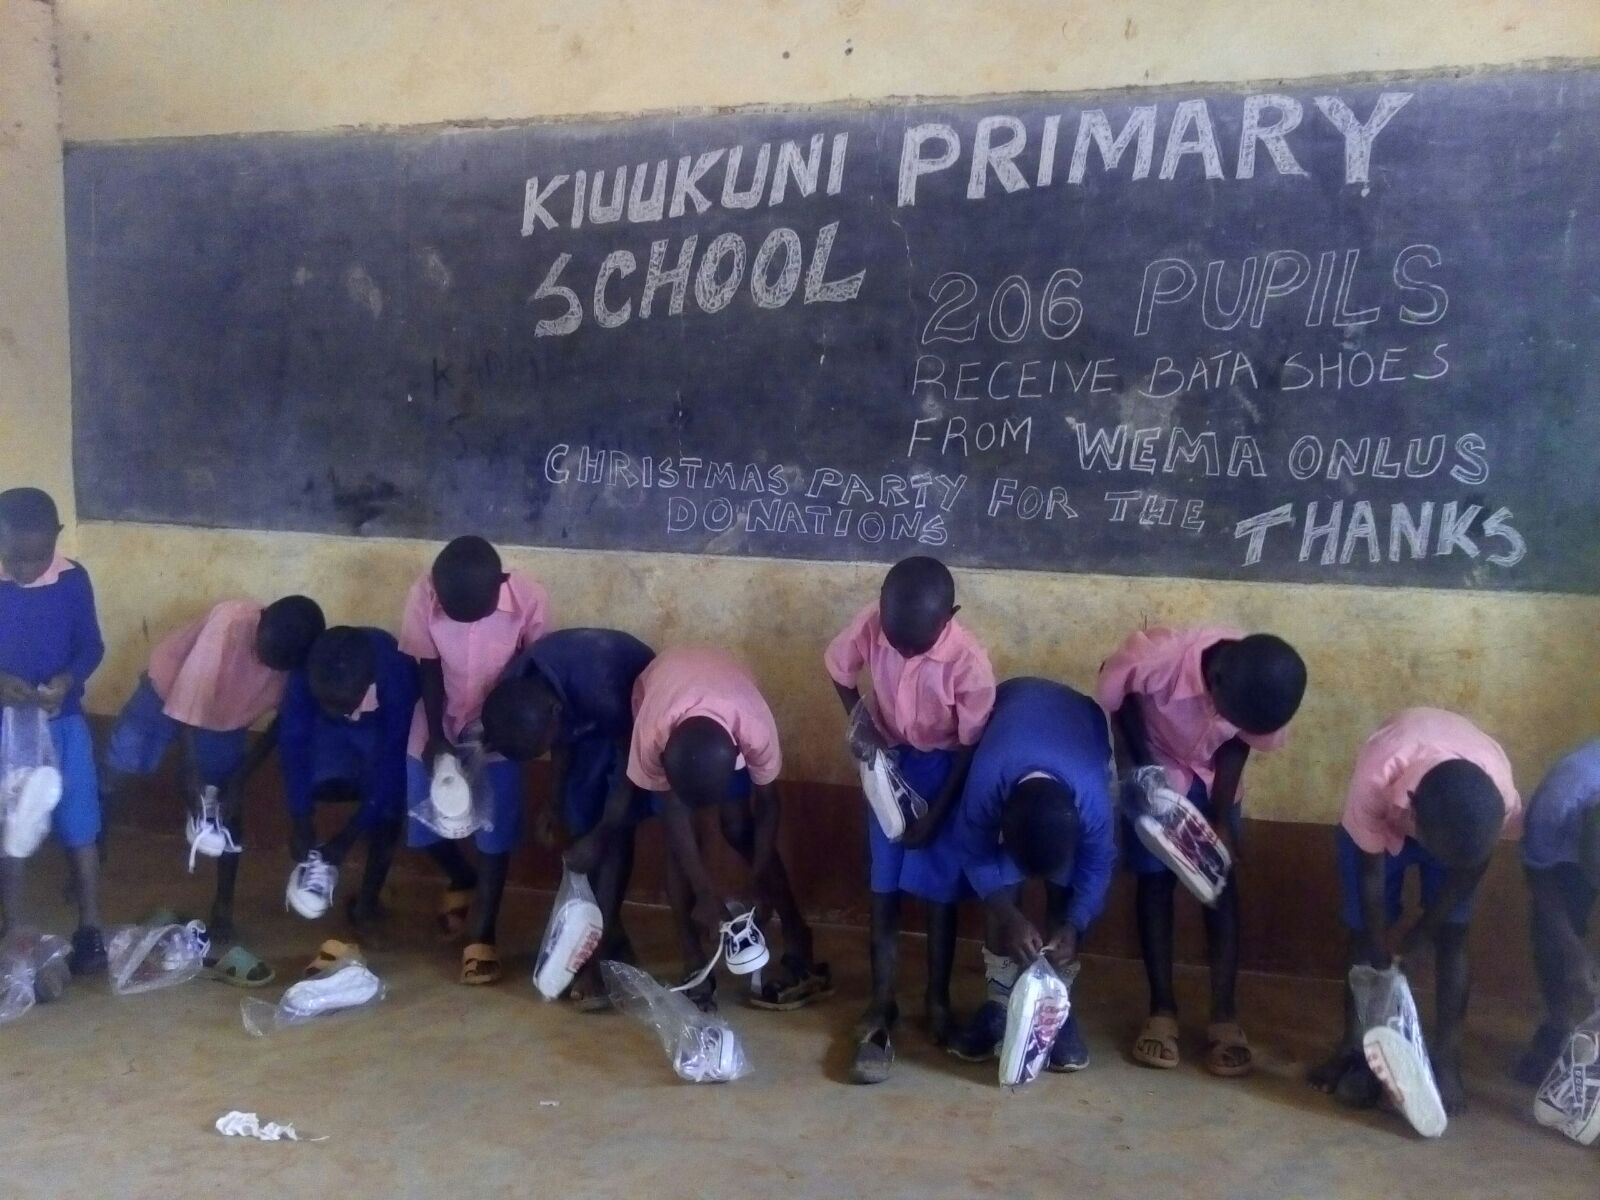 KIUUKUNI PRIMARY
SCHOOL
206 PUPILS
RECEIVE BATA SHOES
FROM WEMA ONLUS
CHRISTMAS PARTY FOR THE THANKS
DONATIONS